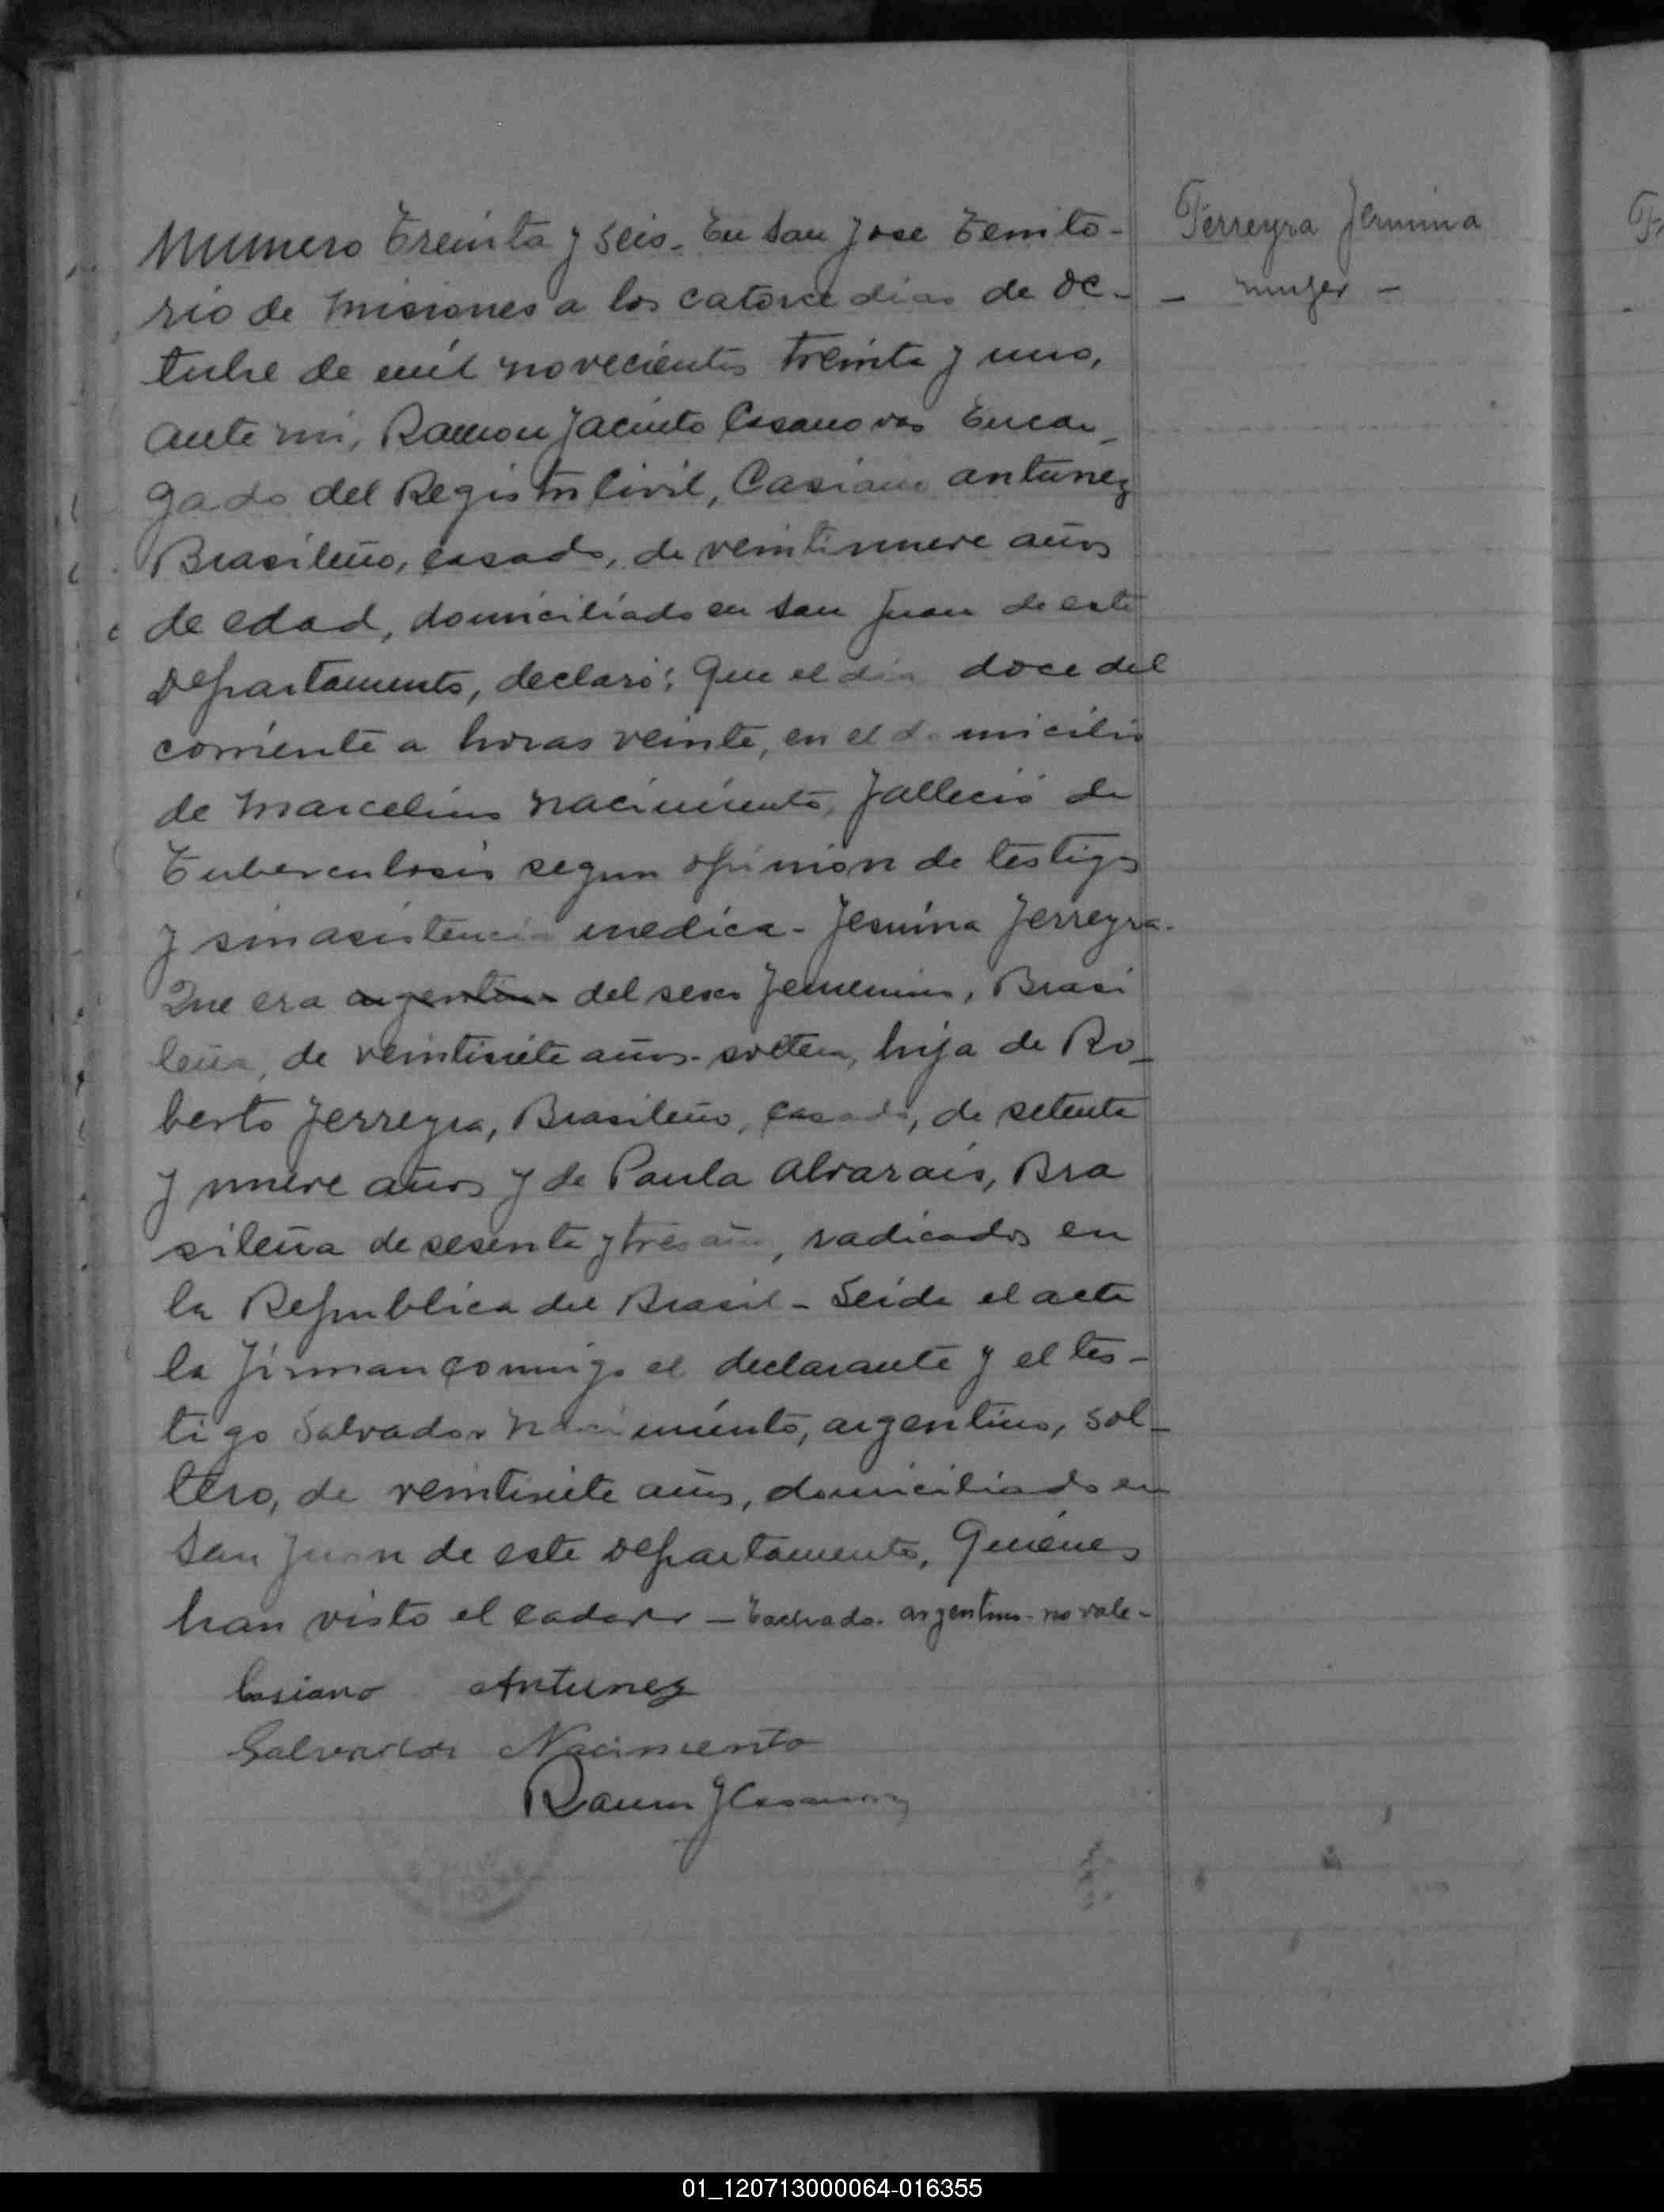 Ferreyra Jermina
- mujer -
Numero Treinta y seis. En San Jose Territo-
rio de Misiones a los catorce dias de oc-
tubre de mil novecientos treinta y uno,
ante mi, Ramon Jacinto Casanovas Encar-
gado del Registro Civil, Casiano Antunez
Brasileño, casado, de veintinueve años
de edad, domiciliado en San Juan de este
Departamento, declaró: Que el dia doce del
corriente a horas veinte, en el domicilio
de Marcelino Nacimiento, falleció de
Tuberculosis segun opinion de testigos
y sin asistencia medica - Jermina Ferreyra.
Que era argentina del sexo femenino, Brasi
leña, de veintisiete años. soltera, hija de Ro-
berto Ferreyra, Brasileño, casado, de setenta
y nueve años y de Paula Alvarais, Bra
sileña de sesenta y tres años, radicados en
la Republica del Brasil - Leida el acta
la firman conmigo el declarante y el tes-
tigo Salvador Nacimiento, argentino, sol-
tero, de veintisiete años, domiciliado en
San Juan de este Departamento, Quienes
han visto el cadaver - Tachado. argentina - no vale -
Casiano Antunez
Salvador Nacimiento
Ramon J Casanovas
01_120713000064-016355